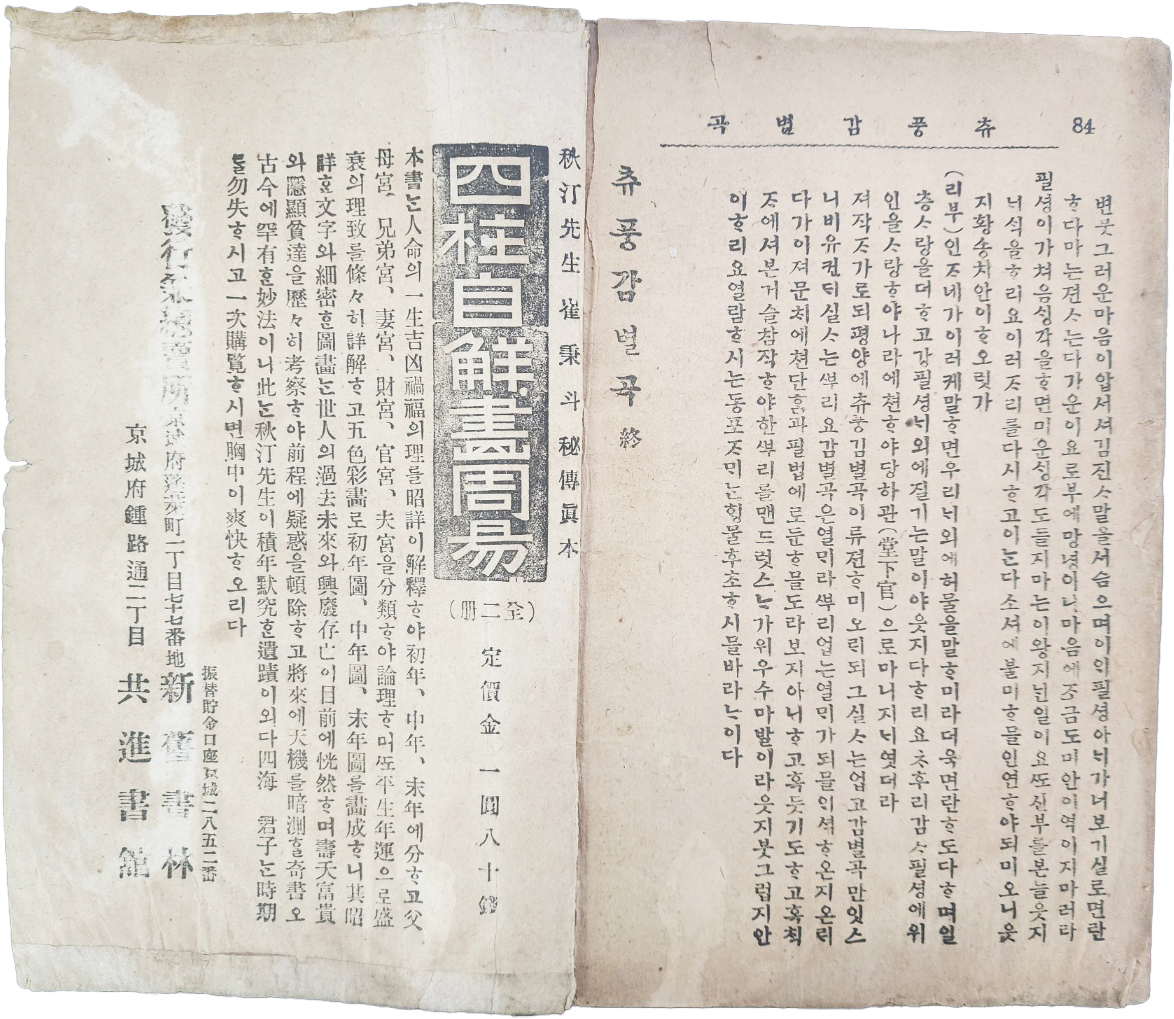 84 츄풍감별곡
변붓그러운마음이압셔셔김진ᄉᆞ말을셔슴으며이의필셩아ᄂᆡ가너보기실로면란
ᄒᆞ다마는젼ᄉᆞ는다가운이요로부에망녕이니마음에ᄌᆞ금도미안이역이지마러라
필셩이가쳐음ᄉᆡᆼ각을ᄒᆞ면미운ᄉᆡᆼ각도들지마는이왕지ᄂᆡᆫ일이요ᄯᅩᄉᆡᆫ부를본늘웃지
ᄂᆡ석을ᄒᆞ리요이러ᄌᆞ리를다시ᄒᆞ고이는다소셔에불미ᄒᆞ믈인연ᄒᆞ야되미오니웃
지황송치안이ᄒᆞ오릿가
(리부)인ᄌᆞ네가이러케말ᄒᆞ면우리ᄂᆡ외에허물을말ᄒᆞ미라더욱면란ᄒᆞ도다ᄒᆞ며일
층ᄉᆞ랑을더ᄒᆞ고간필셩ᄂᆡ외에질기는말이야웃지다ᄒᆞ리요ᄎᆞ후리감ᄉᆞ필셩에위
인을ᄉᆞ랑ᄒᆞ야나라에쳔ᄒᆞ야당하관(堂下官)으로마니지ᄂᆡ엿더라
져작ᄌᆞ가로되평양에츄풍김별곡이류젼ᄒᆞ미오ᄅᆡ되그실ᄉᆞ는업고감별곡만잇스
니비유컨ᄃᆡ실ᄉᆞ는ᄲᅮ리요감별곡은열ᄆᆡ라ᄲᅮ리업는열ᄆᆡ가되믈의셕ᄒᆞ온지온ᄅᆡ
다가이져문치에쳔단홈과필법에로둔ᄒᆞ믈도라보지아니ᄒᆞ고혹듯기도ᄒᆞ고혹ᄎᆡᆨ
ᄌᆞ에셔본거슬참작ᄒᆞ야한ᄲᅮ리를맨드럿스ᄂᆞ가위우수마발이라웃지붓그럽지안
이ᄒᆞ리요열람ᄒᆞ시는동포ᄌᆞᄆᆡ는험물후초ᄒᆞ시믈바라ᄂᆞ이다
츄풍감별곡 終
秋汀先生崔秉斗秘傳眞本
四柱自解畵周易
(全二册)
定價金一圓八十錢
本書ᄂᆞᆫ人命의一生吉凶禍福의理를昭詳이解釋ᄒᆞ야初年、中年、末年에分ᄒᆞ고父
母宮、兄弟宮、妻宮、財宮、官宮、夫宮을分類ᄒᆞ야論理ᄒᆞ며ᄯᅩ平生年運으로盛
衰의理致를條々히詳解ᄒᆞ고五色彩畵로初年圖、中年圖、末年圖를畵成ᄒᆞ니其昭
詳ᄒᆞᆫ文字와細密ᄒᆞᆫ圖畵ᄂᆞᆫ世人의過去未來와興廢存亡이目前에恍然ᄒᆞ며壽夭富貴
와隱顯貧達을歷々히考察ᄒᆞ야前程에疑惑을頓除ᄒᆞ고將來에天機를暗測ᄒᆞᆯ奇書오
古今에罕有ᄒᆞᆫ妙法이니此ᄂᆞᆫ秋汀先生이積年默究ᄒᆞᆫ遺蹟이외다四海 君子ᄂᆞᆫ時期
를勿失ᄒᆞ시고一次購覽ᄒᆞ시면胸中이爽快ᄒᆞ오리다
振替貯金口座京城二八五二番
發行 京城府蓬萊町一丁目七七番地 新舊書林
京城府鍾路通二丁目 共進書舘